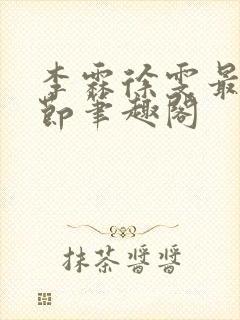 李霖徐雯最
节笔趣阁
抹茶酱酱